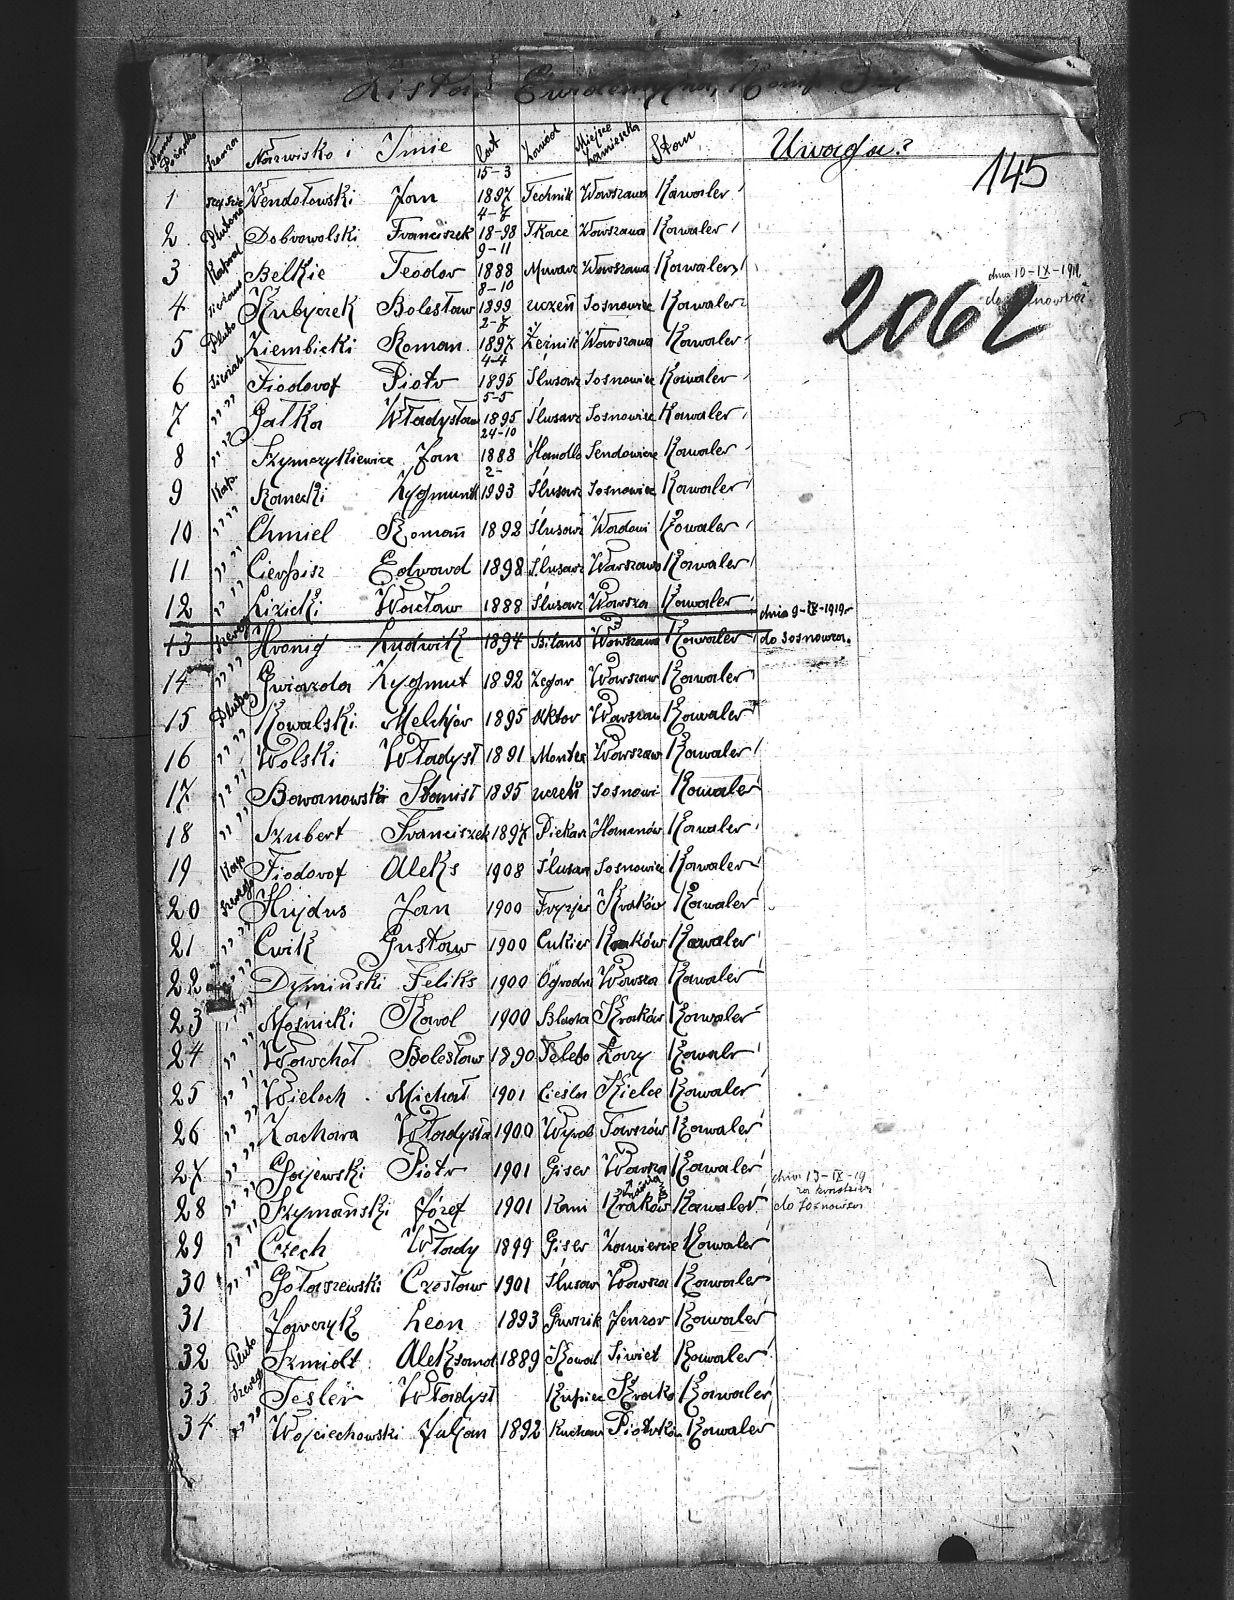 Lista Ewidencyjna, Komp.
Szarża Nazwisko i Imie Lat Zawód Miejsce Zamieszka Stan Uwaga?
145
15-3
1 Wendołowski Jan 1897 Technik Warszawa Kawaler
4-7
2 Dobrowolski Franciszek 18-98 Tkacz Warszawa Kawaler
9-11
3 Kapral Belkie Teodor 1888 Murarz Warszawa Kawaler dnia 10-IX-1919
8-10
4 Kubyczek Bolesław 1899 uczeń Sosnowiec Kawaler
2062
2-7
5 Pluto Ziembicki Roman 1897 Warszawa Kawaler
4-4
6 Fiodorof Piotr 1895 Ślusarz Sosnowiec Kawaler
5-5
7 " " Gałka Władysław 1895 Ślusarz Sosnowiec Kawaler
24-10
8 " " Szymczykiewicz Jan 1888 Handlo Kawaler
2-
9 Kap. Konecki Zygmunt 1993 Ślusarz Sosnowiec Kawaler
10 " " Chmiel Roman 1892 Ślusarz Kawaler
11 " " Cierpisz Edward 1898 Ślusarz Warszawa Kawaler
12 " " Lizicki Wacław 1888 Slusarz Warsza Kawaler dnia 9-IX-1919r
13 Szereg Hronig Ludwik 1894 Warszawa Kawaler do Sosnowca.
14 " " Gwiazda Zygmut 1892 Zegar Warszaw Kawaler
15 Pluto Kowalski Melchjor 1895 Aktor Warszaw Kawaler
16 " " Wolski Władyst 1891 Monter Warszaw Kawaler
17 " " Baranowski Stanist 1895 uczeń Sosnowi Kawaler
18 " " Szubert Franciszek 1897 Piekarz Kawaler
19 Kap Fiodorof Aleks 1908 Ślusar Sosnowiec Kawaler
20 Szereg Hujdus Jan 1900 Fryzjer Kraków Kawaler
21 " " Cwik Gustaw 1900 Cukier Kraków Kawaler
22 " " Dymiński Feliks 1900 Ogrodni Warsza Kawaler
23 " " Mośnicki Karol 1900 Blacha Kraków Kawaler
24 " " Warchoł Bolesław 1890 Kawalr
25 " " Wieloch Michał 1901 Cieśla Kielce Kawaler
26 " " Zachara Władysła 1900 Wyrob Tarnów Kawaler
27 " " Gajewski Piotr 1901 Giser Warsza Kawaler dnia 13-IX-19
28 " " Szymański Józef 1901 Kami Kraków Kawaler do Sosnowca
29 " " Czech Włady 1899 Giser Zawiercie Kawaler
30 " " Gołaszewski Czesław 1901 Ślusar Warsza Kawaler
31 Jawczyk Leon 1893 Gurnik Kawaler
32 Pluto Szmidt Aleksand 1889 Kowal Kawaler
33 Szereg Tesler Władyst Kupiec Krako Kawaler
34 " " Wojciechowski Juljan 1892 Kuchar Piotrków Kawaler